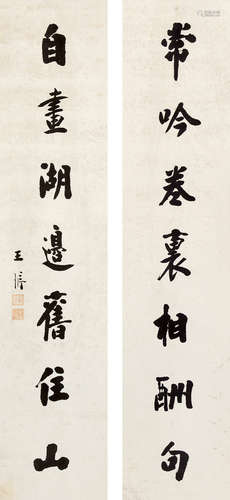 常吟卷裏相酬句
自畫湖邊舊住山